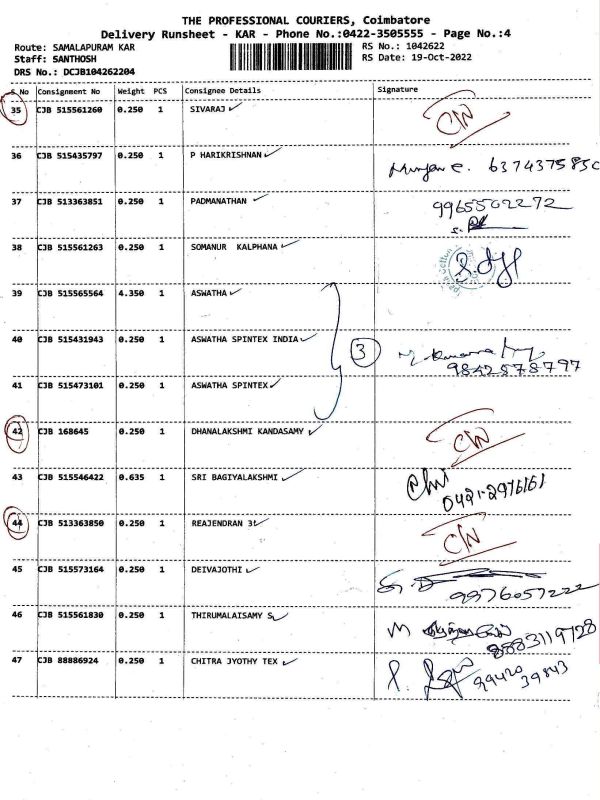 THE PROFESSIONAL COURIERS, Coimbatore
Delivery Runsheet - KAR - Phone No.:0422-3505555 - Page No.:4
Route: SAMALAPURAM KAR RS No.: 1042622
Staff: SANTHOSH RS Date: 19-Oct-2022
DRS No.: DCJB104262204
S No Consignment No Weight PCS Consignee Details Signature
35 CJB 515561260 0.250 1 SIVARAJ
36 CJB 515435797 0.250 1 P HARIKRISHNAN
37 CJB 513363851 0.250 1 PADMANATHAN 9965502272
38 CJB 515561263 0.250 1 SOMANUR KALPHANA
39 CJB 515565564 4.350 1 ASWATHA
40 CJB 515431943 0.250 1 ASWATHA SPINTEX INDIA 3 9842578797
41 CJB 515473101 0.250 1 ASWATHA SPINTEX
42 CJB 168645 0.250 1 DHANALAKSHMI KANDASAMY
43 CJB 515546422 0.635 1 SRI BAGIYALAKSHMI 0421-2976161
44 CJB 513363850 0.250 1 REAJENDRAN
45 CJB 515573164 0.250 1 DEIVAJOTHI 9976057222
46 CJB 515561830 0.250 1 THIRUMALAISAMY S 8883119728
47 CJB 88886924 0.250 1 CHITRA JYOTHY TEX 99420
39843